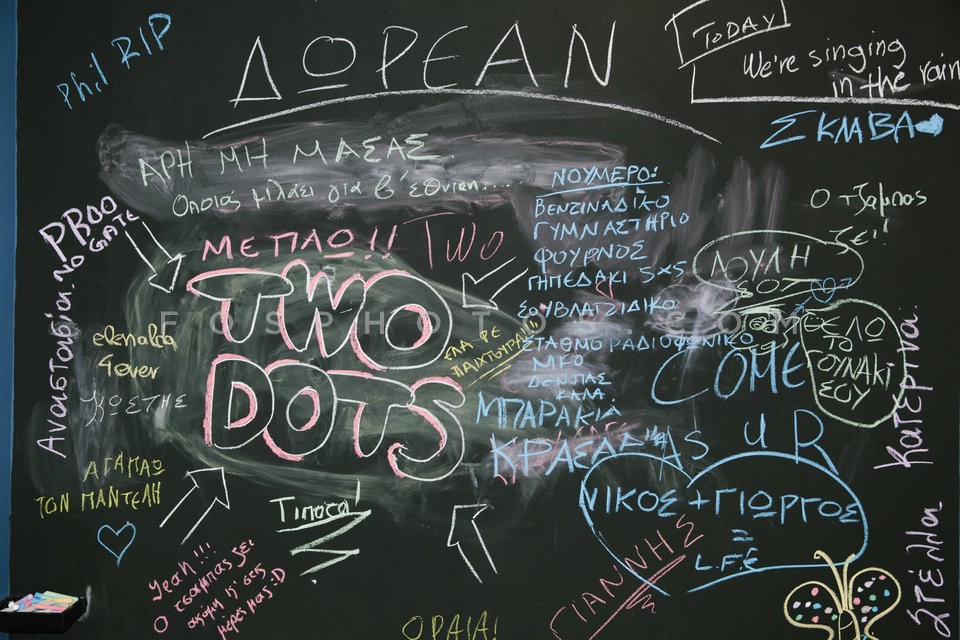 Phil RIP
ΔΩΡΕΑΝ
TODAY
We're singing
in the rain
ΣΚΛΑΒΑ
ΑΡΗ ΜΗ ΜΑΣΑΣ
Οποιος μιλάει για β' εθνικη.....
ΝΟΥΜΕΡΟ:
ΒΕΝΖΙΝΑΔΙΚΟ
ΓΥΜΝΑΣΤΗΡΙΟ
ΦΟΥΡΝΟΣ
ΓΗΠΕΔΑΚΙ 5×5
ΣΟΥΒΛΑΤΖΙΔΙΚΟ
ΣΤΑΘΜΟ ΡΑΔΙΟΦΩΝΙΚΟ
ΜΚΟ
ΚΑΛΑ.
ΜΠΑΡΑΚΙΑ
Ο τζαμπας
ζει!
ΛΟΥΛΗ
ΣΟΤ
ΘΕΛΩ
ΤΟ
ΓΟΥΝΑΚΙ
ΣΟΥ
PROO
ΜΕ ΠΛΩ!! TWO
TWO
DOTS
ΕΛΑ ΡΕ
ΠΑΙΧΤΟΥΡΑ!!!
FOSPHOTOS.COM
Αναστασία.
elenaba
4ever
ΚΩΣΤΗΣ
ΑΓΑΠΑΩ
ΤΟΝ ΠΑΝΤΕΛΗ
Τιποτα!
COME
AS U R
Κατερίνα.
ΝΙΚΟΣ + ΓΙΩΡΓΟΣ
=
L.F.E
Στέλλα
ΓΙΑΝΝΗΣ
Yeah!!!
Ο τσαμπας ζει
ακόμη κ' στις
μέρες μας :D
ΩΡΑΙΑ!